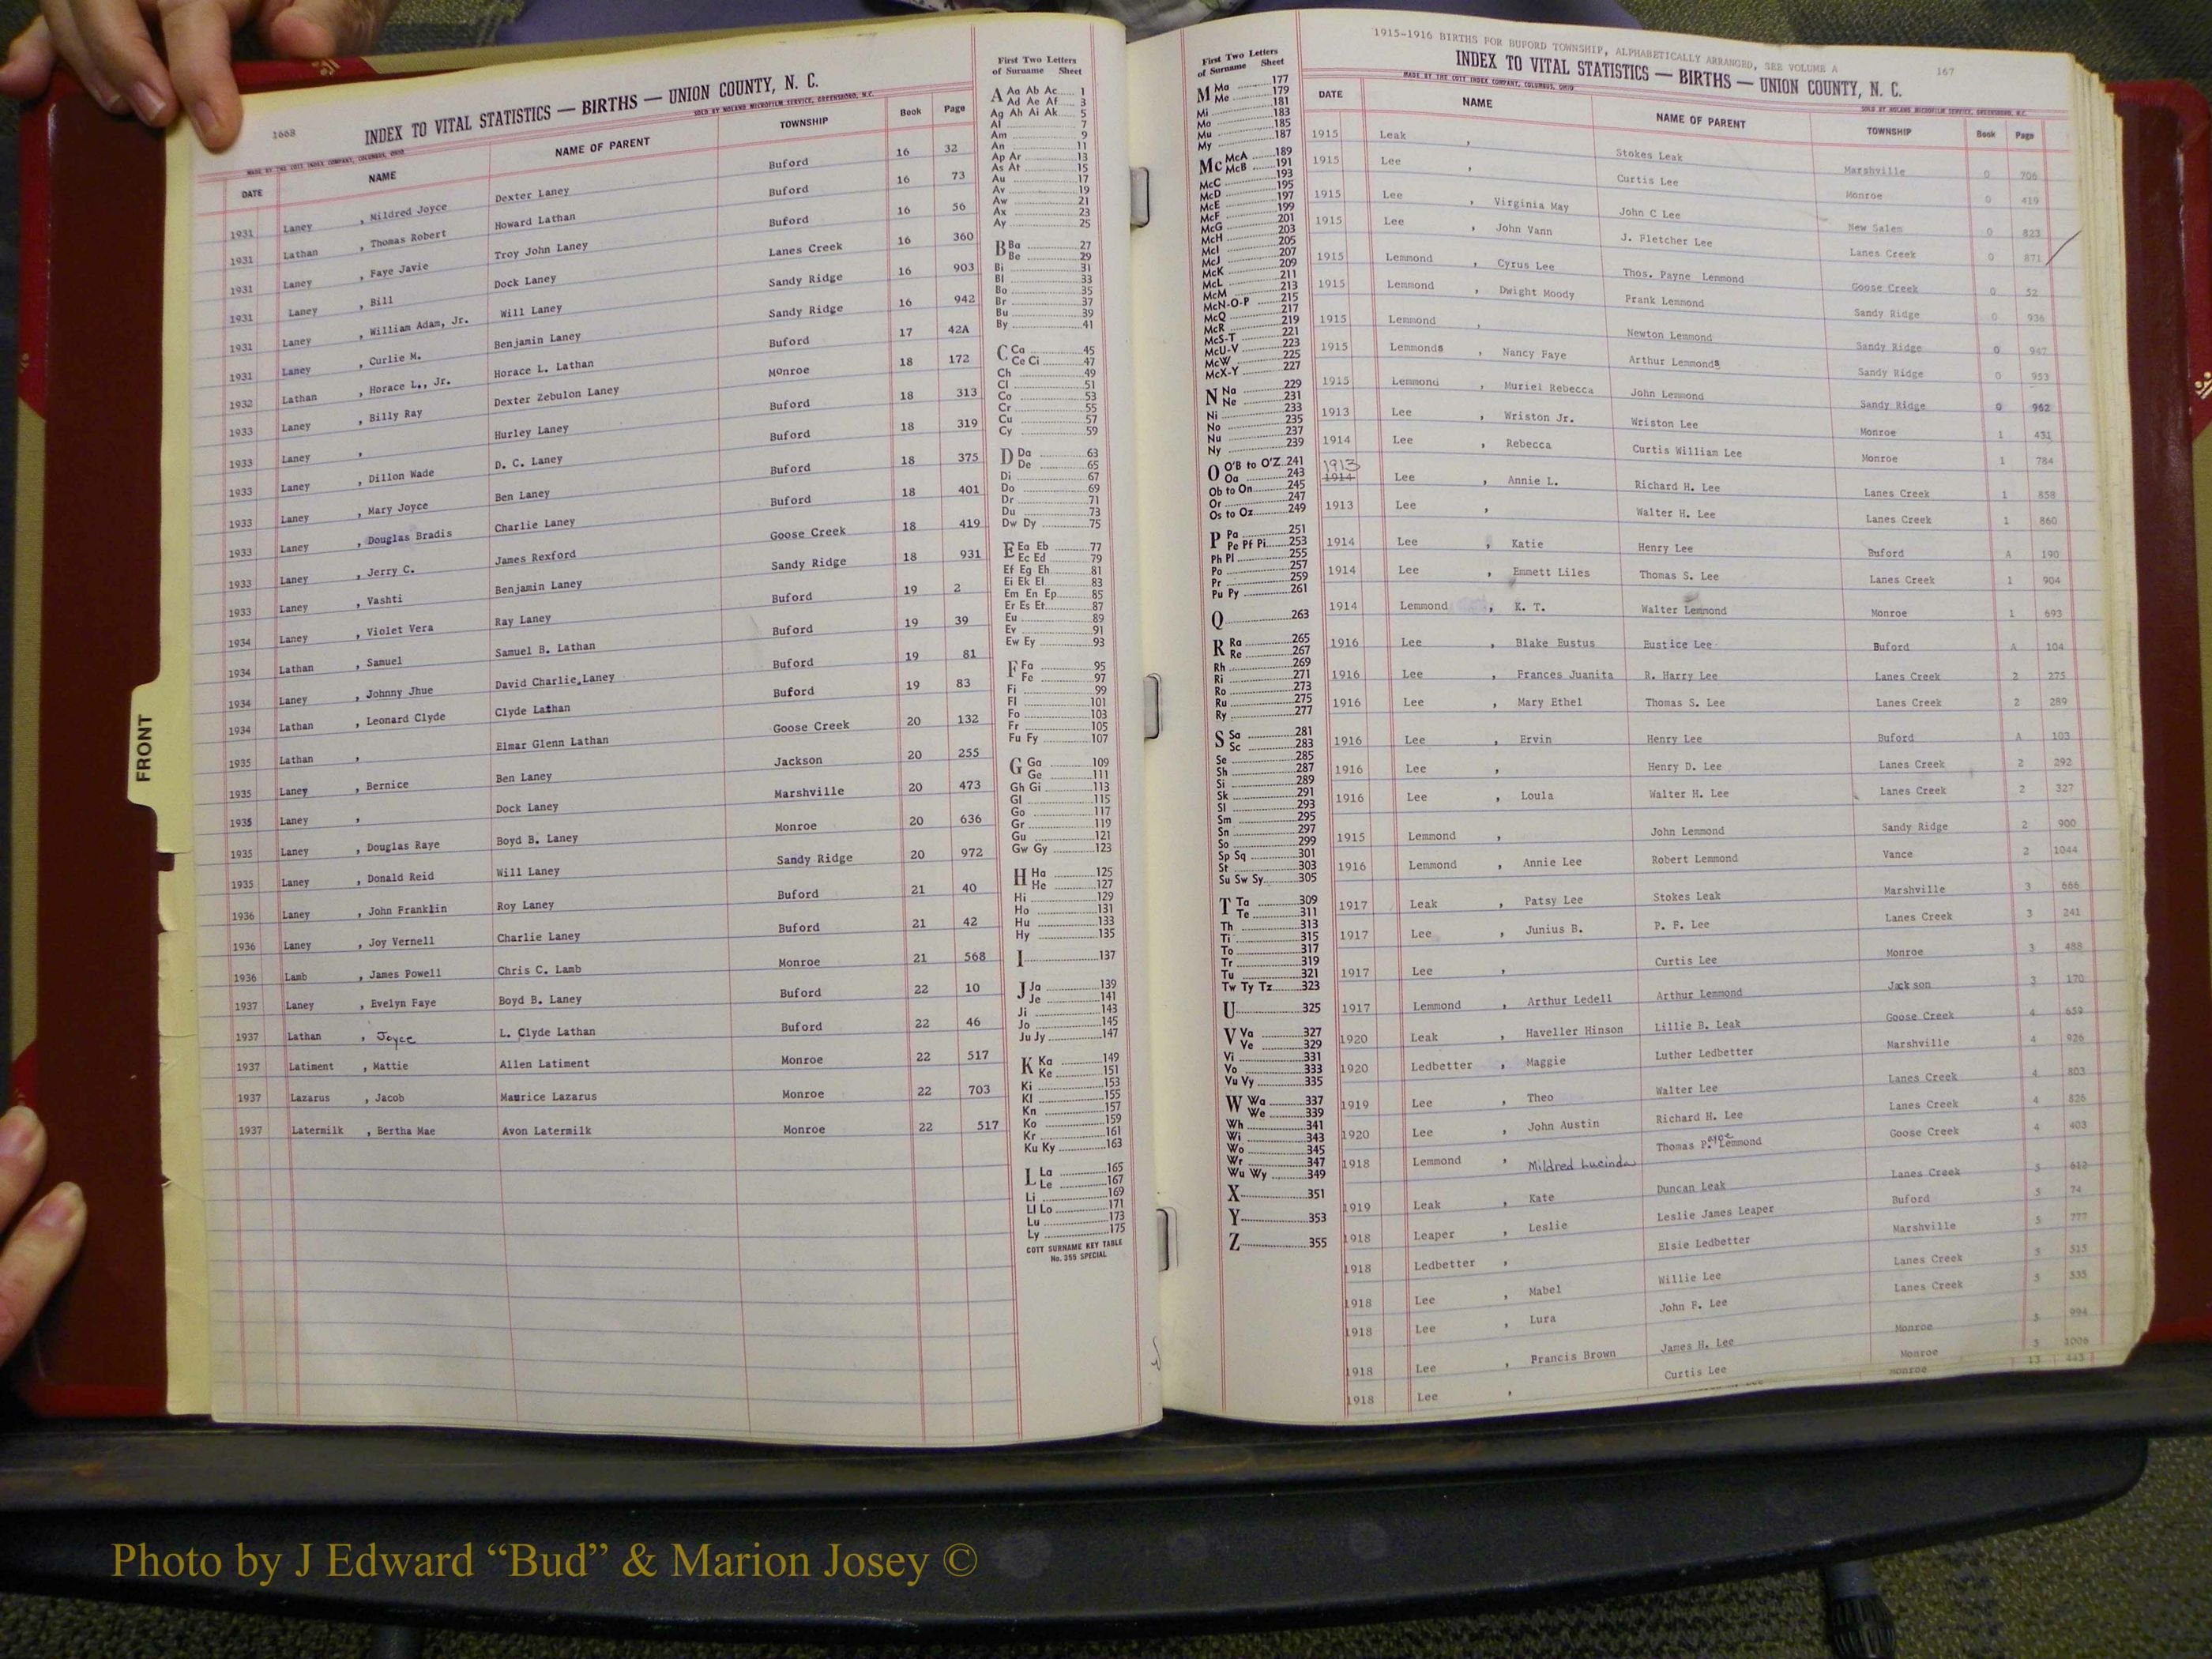 1668
INDEX TO VITAL STATISTICS — BIRTHS — UNION COUNTY, N. C.
MADE BY THE COTT INDEX COMPANY, COLUMBUS, OHIO SOLD BY NOLAND MICROFILM SERVICE, GREENSBORO, N.C.
DATE NAME NAME OF PARENT TOWNSHIP Book Page
1931 Laney , Mildred Joyce Dexter Laney Buford 16 32
1931 Lathan , Thomas Robert Howard Lathan Buford 16 73
1931 Laney , Faye Javie Troy John Laney Buford 16 56
1931 Laney , Bill Dock Laney Lanes Creek 16 360
1931 Laney , William Adam, Jr. Will Laney Sandy Ridge 16 903
1931 Laney , Curlie M. Benjamin Laney Sandy Ridge 16 942
1932 Lathan , Horace L., Jr. Horace L. Lathan Buford 17 42A
1933 Laney , Billy Ray Dexter Zebulon Laney Monroe 18 172
1933 Laney , Hurley Laney Buford 18 313
1933 Laney , Dillon Wade D. C. Laney Buford 18 319
1933 Laney , Mary Joyce Ben Laney Buford 18 375
1933 Laney , Douglas Bradis Charlie Laney Buford 18 401
1933 Laney , Jerry C. James Rexford Goose Creek 18 419
1933 Laney , Vashti Benjamin Laney Sandy Ridge 18 931
1934 Laney , Violet Vera Ray Laney Buford 19 2
1934 Lathan , Samuel Samuel B. Lathan Buford 19 39
1934 Laney , Johnny Jhue David Charlie Laney Buford 19 81
1934 Lathan , Leonard Clyde Clyde Lathan Buford 19 83
1935 Lathan , Elmar Glenn Lathan Goose Creek 20 132
1935 Laney , Bernice Ben Laney Jackson 20 255
1935 Laney , Dock Laney Marshville 20 473
1935 Laney , Douglas Raye Boyd B. Laney Monroe 20 636
1935 Laney , Donald Reid Will Laney Sandy Ridge 20 972
1936 Laney , John Franklin Roy Laney Buford 21 40
1936 Laney , Joy Vernell Charlie Laney Buford 21 42
1936 Lamb , James Powell Chris C. Lamb Monroe 21 568
1937 Laney , Evelyn Faye Boyd B. Laney Buford 22 10
1937 Lathan , Joyce L. Clyde Lathan Buford 22 46
1937 Latiment , Mattie Allen Latiment Monroe 22 517
1937 Lazarus , Jacob Maurice Lazarus Monroe 22 703
1937 Latermilk , Bertha Mae Avon Latermilk Monroe 22 517
FRONT
First Two Letters
of Surname Sheet
A Aa Ab Ac 1
Ad Ae Af 3
Ag Ah Ai Ak 5
Al 7
Am 9
An 11
Ap Ar 13
As At 15
Au 17
Av 19
Aw 21
Ax 23
Ay 25
B Ba 27
Be 29
Bi 31
Bl 33
Bo 35
Br 37
Bu 39
By 41
C Ca 45
Ce Ci 47
Ch 49
Cl 51
Co 53
Cr 55
Cu 57
Cy 59
D Da 63
De 65
Di 67
Do 69
Dr 71
Du 73
Dw Dy 75
E Ea Eb 77
Ec Ed 79
Ef Eg Eh 81
Ei Ek El 83
Em En Ep 85
Er Es Et 87
Eu 89
Ev 91
Ew Ey 93
F Fa 95
Fe 97
Fi 99
Fl 101
Fo 103
Fr 105
Fu Fy 107
G Ga 109
Ge 111
Gh Gi 113
Gl 115
Go 117
Gr 119
Gu 121
Gw Gy 123
H Ha 125
He 127
Hi 129
Ho 131
Hu 133
Hy 135
I 137
J Ja 139
Je 141
Ji 143
Jo 145
Ju Jy 147
K Ka 149
Ke 151
Ki 153
Kl 155
Kn 157
Ko 159
Kr 161
Ku Ky 163
L La 165
Le 167
Li 169
Ll Lo 171
Lu 173
Ly 175
COTT SURNAME KEY TABLE
No. 355 SPECIAL
First Two Letters
of Surname Sheet
M Ma 177
Me 179
Mi 181
Mo 183
Mu 185
My 187
Mc McA 189
McB 191
McC 193
McD 195
McE 197
McF 199
McG 201
McH 203
McI 205
McJ 207
McK 209
McL 211
McM 213
McN-O-P 215
McQ 217
McR 219
McS-T 221
McU-V 223
McW 225
McX-Y 227
N Na 229
Ne 231
Ni 233
No 235
Nu 237
Ny 239
O O'B to O'Z 241
Oa 243
Ob to On 245
Or 247
Os to Oz 249
P Pa 251
Pe Pf Pi 253
Ph Pl 255
Po 257
Pr 259
Pu Py 261
Q 263
R Ra 265
Re 267
Rh 269
Ri 271
Ro 273
Ru 275
Ry 277
S Sa 281
Sc 283
Se 285
Sh 287
Si 289
Sk 291
Sl 293
Sm 295
Sn 297
So 299
Sp Sq 301
St 303
Su Sw Sy 305
T Ta 309
Te 311
Th 313
Ti 315
To 317
Tr 319
Tu 321
Tw Ty Tz 323
U 325
V Va 327
Ve 329
Vi 331
Vo 333
Vu Vy 335
W Wa 337
We 339
Wh 341
Wi 343
Wo 345
Wr 347
Wu Wy 349
X 351
Y 353
Z 355
1915-1916 BIRTHS FOR BUFORD TOWNSHIP, ALPHABETICALLY ARRANGED, SEE VOLUME A 167
INDEX TO VITAL STATISTICS — BIRTHS — UNION COUNTY, N. C.
MADE BY THE COTT INDEX COMPANY, COLUMBUS, OHIO SOLD BY NOLAND MICROFILM SERVICE, GREENSBORO, N.C.
DATE NAME NAME OF PARENT TOWNSHIP Book Page
1915 Leak , Stokes Leak Marshville 0 706
1915 Lee , Curtis Lee Monroe 0 419
1915 Lee , Virginia May John C Lee New Salem 0 823
1915 Lee , John Vann J. Fletcher Lee Lanes Creek 0 871
1915 Lemmond , Cyrus Lee Thos. Payne Lemmond Goose Creek 0 52
1915 Lemmond , Dwight Moody Frank Lemmond Sandy Ridge 0 936
1915 Lemmond , Newton Lemmond Sandy Ridge 0 947
1915 Lemmonds , Nancy Faye Arthur Lemmonds Sandy Ridge 0 953
1915 Lemmond , Muriel Rebecca John Lemmond Sandy Ridge 0 962
1913 Lee , Wriston Jr. Wriston Lee Monroe 1 431
1914 Lee , Rebecca Curtis William Lee Monroe 1 784
1913
1914 Lee , Annie L. Richard H. Lee Lanes Creek 1 858
1913 Lee , Walter H. Lee Lanes Creek 1 860
1914 Lee , Katie Henry Lee Buford A 190
1914 Lee , Emmett Liles Thomas S. Lee Lanes Creek 1 904
1914 Lemmond , K. T. Walter Lemmond Monroe 1 693
1916 Lee , Blake Eustus Eustice Lee Buford A 104
1916 Lee , Frances Juanita R. Harry Lee Lanes Creek 2 275
1916 Lee , Mary Ethel Thomas S. Lee Lanes Creek 2 289
1916 Lee , Ervin Henry Lee Buford A 103
1916 Lee , Henry D. Lee Lanes Creek 2 292
1916 Lee , Loula Walter H. Lee Lanes Creek 2 327
1915 Lemmond , John Lemmond Sandy Ridge 2 900
1916 Lemmond , Annie Lee Robert Lemmond Vance 2 1044
1917 Leak , Patsy Lee Stokes Leak Marshville 3 666
1917 Lee , Junius B. P. F. Lee Lanes Creek 3 241
1917 Lee , Curtis Lee Monroe 3 488
1917 Lemmond , Arthur Ledell Arthur Lemmond Jackson 3 170
1920 Leak , Haveller Hinson Lillie B. Leak Goose Creek 4 659
1920 Ledbetter , Maggie Luther Ledbetter Marshville 4 926
1919 Lee , Theo Walter Lee Lanes Creek 4 803
1920 Lee , John Austin Richard H. Lee Lanes Creek 4 826
1918 Lemmond , Mildred Lucinda Thomas P. ayne Lemmond Goose Creek 4 403
1919 Leak , Kate Duncan Leak Lanes Creek 5 612
1918 Leaper , Leslie Leslie James Leaper Buford 5 74
1918 Ledbetter , Elsie Ledbetter Marshville 5 777
1918 Lee , Mabel Willie Lee Lanes Creek 5 515
1918 Lee , Lura John F. Lee Lanes Creek 5 535
1918 Lee , Francis Brown James H. Lee Monroe 5 994
1918 Lee , Curtis Lee Monroe 5 1006
Monroe 13 443
Photo by J Edward “Bud” & Marion Josey ©